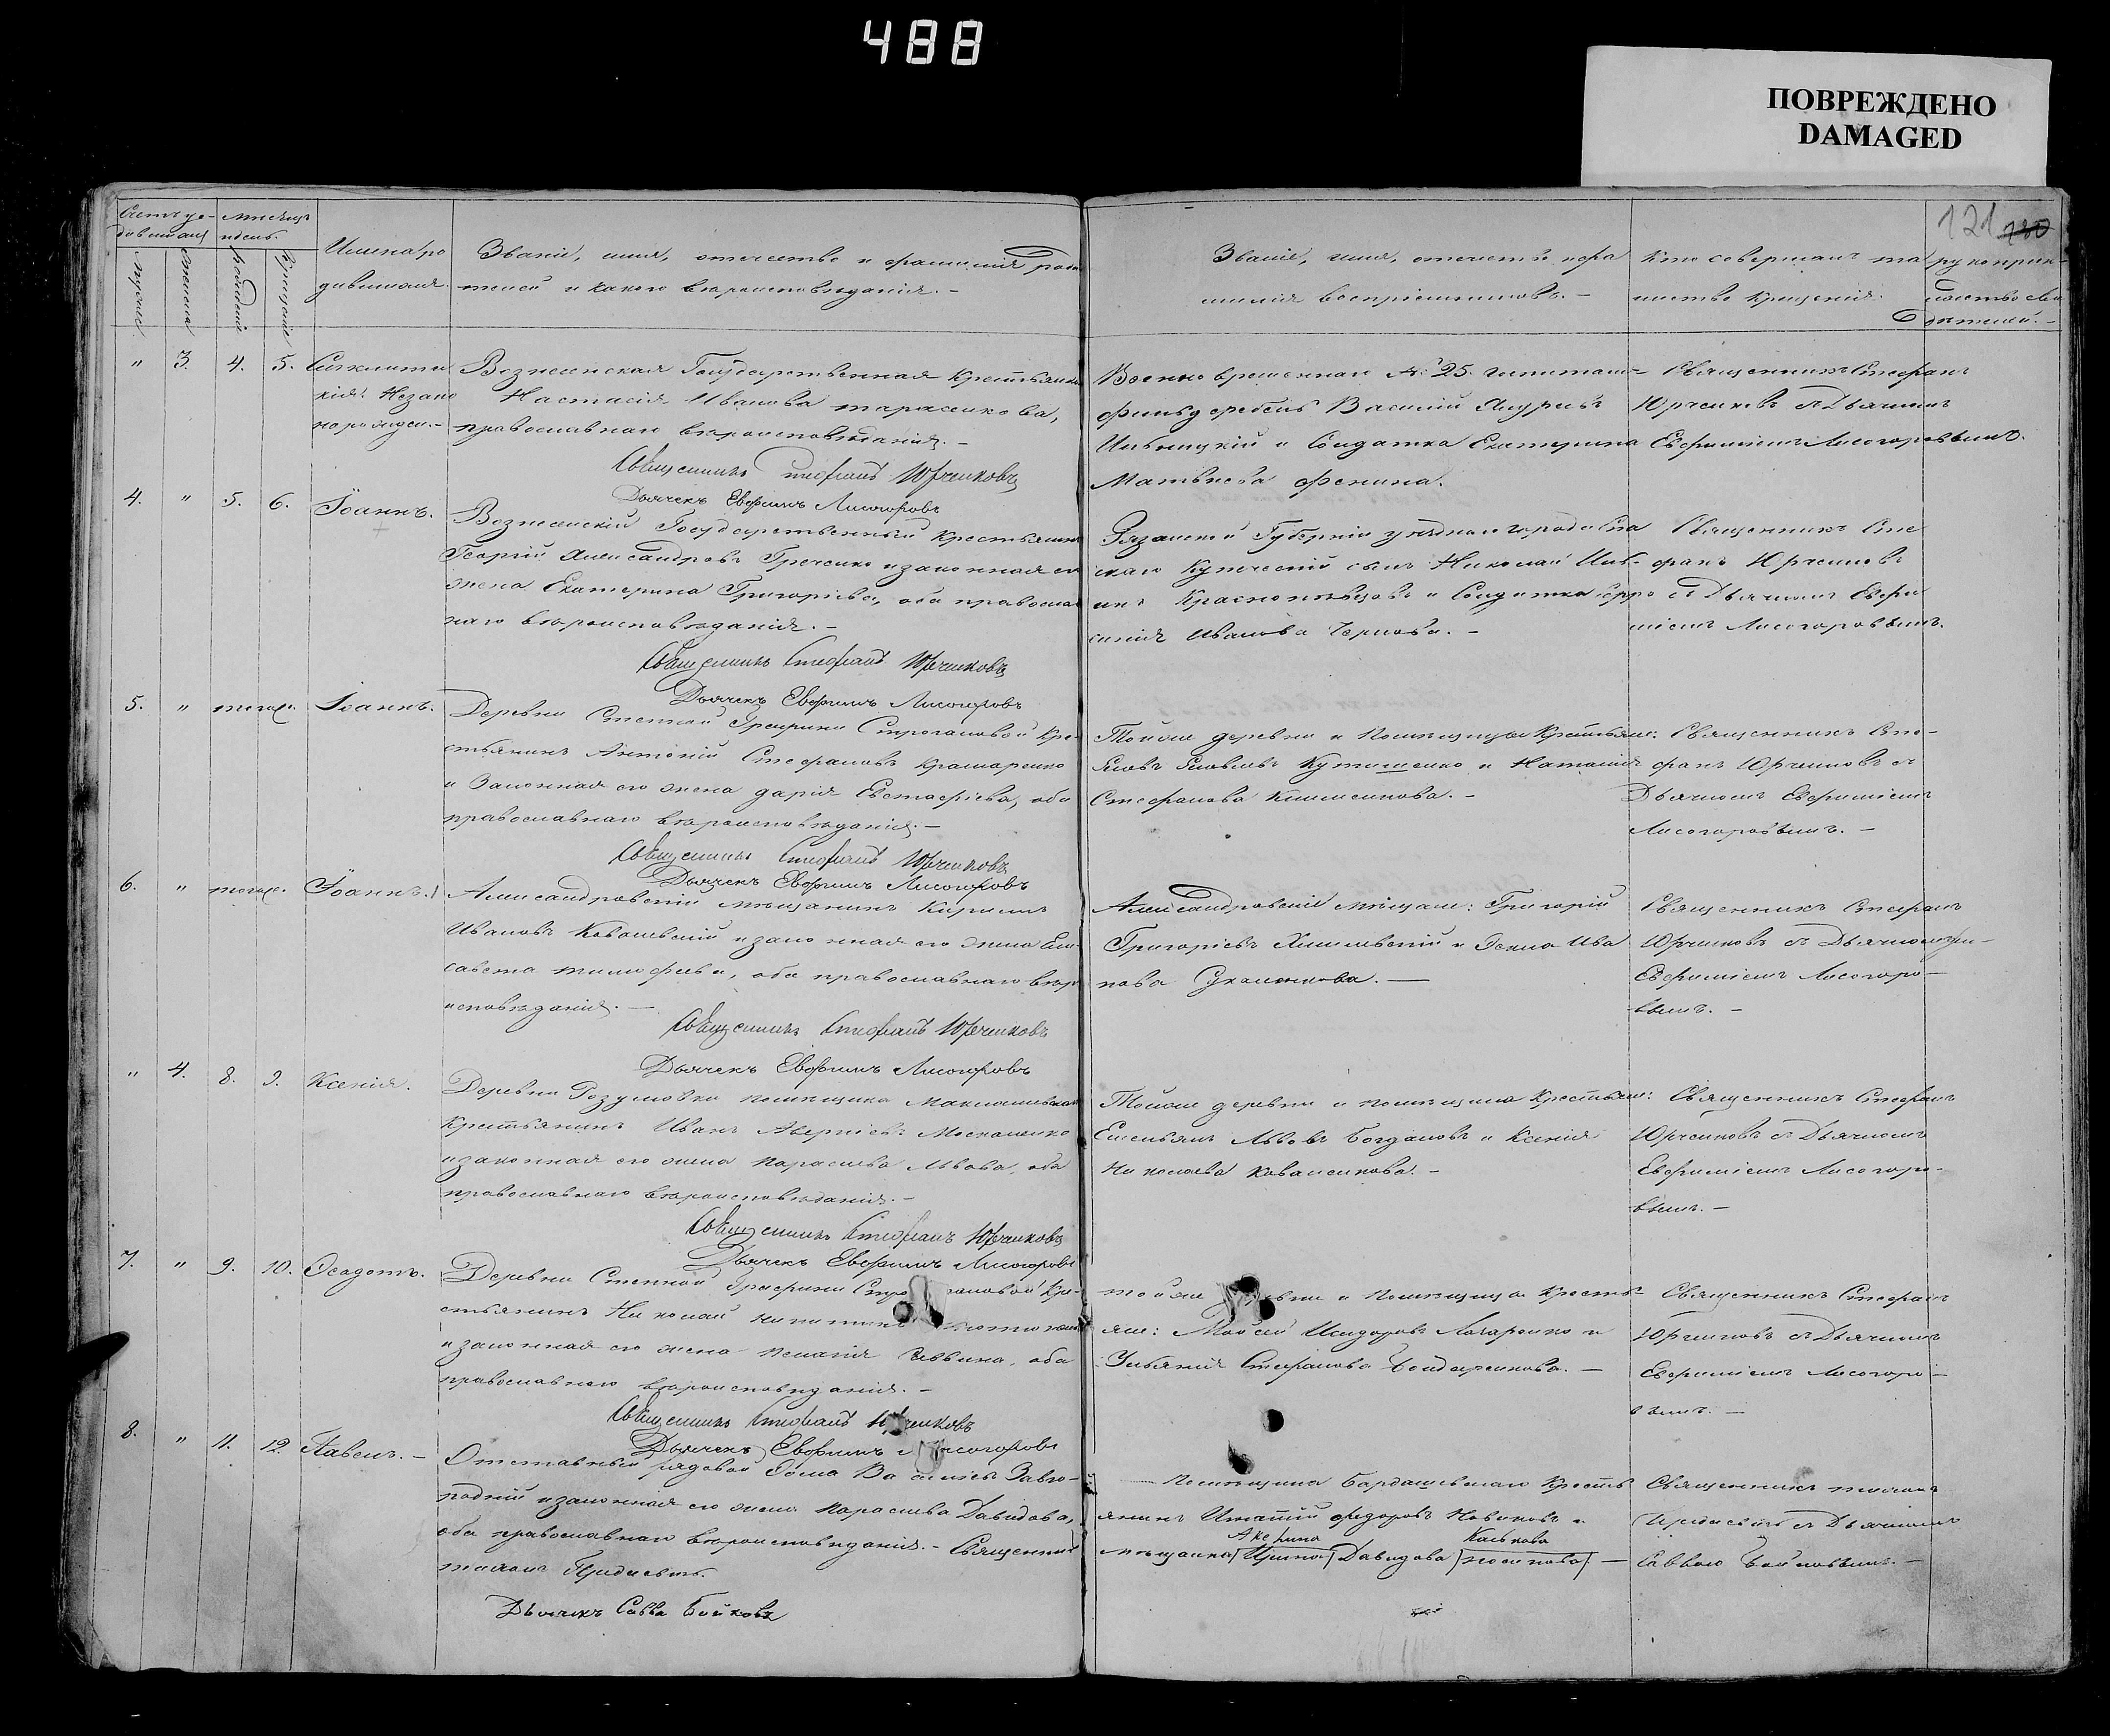 488
ПОВРЕЖДЕНО
DAMAGED
121 120
Счетъ ро-
дившихся
Мѣсяцъ
и день.
мужска
женска
рожденія
крещенія
Имена ро
дившихся
Званіе, имя, отечество и фамилія роди
телей и какого вѣроисповѣданія. –
Званіе, имя, отечество и фа
милія воспріемниковъ. –
Кто совершалъ та
инство крещенія.
рукоприк-
ладство сви
дѣтелей. –
" 3. 4. 5. Сигклити
кія. Незако
норожден. –
Вознесенская Государственная крестьянка
Настасія Иванова Тарасенкова,
православнаго вѣроисповѣданія. –
Священникъ Стефанъ Юрченковъ
Дьячекъ Евфимъ Лисогоровъ
Военно временнаго №: 25. гошпиталя
фельдшеръ Василій Андреевъ
и Солдатка Екатерина
Матвѣева Фенина.
Священникъ Стефанъ
Юрченковъ съ Дьячкомъ
Евфиміемъ Лисогоровымъ.
4. " 5. 6. Іоаннъ.
Вознесенскій Государственный крестьянинъ
Георгій Александровъ Гречкино и законная его
жена Екатерина Григоріева, оба православ
наго вѣроисповѣданія. –
Священникъ Стефанъ Юрченковъ
Дьячекъ Евфимъ Лисогоровъ
Рязанской Губерніи уѣзднаго города Спа
скаго Купческій сынъ Николай Ив-
инъ Краснопѣвцовъ и Солдатка Ефро
синія Иванова Чернова. –
Священникъ Сте
фанъ Юрченковъ
съ Дьячкомъ Евфи
міемъ Лисогоровымъ.
5. " тогож. Іоаннъ.
Деревни Степной Графини Строгановой кре-
стьянинъ Антоній Стефановъ Крамаренко
и Законная его жена Дарія Евстафіева, оба
православнаго вѣроисповѣданія. –
Священникъ Стефанъ Юрченковъ
Дьячекъ Евфимъ Лисогоровъ
Тойже деревни и помѣщицы Крестьяне:
Яковъ Яковлевъ Кутишенко и Наталія
Стефанова Клименкова. –
Священникъ Сте-
фанъ Юрченковъ съ
Дьячкомъ Евфиміемъ
Лисогоровымъ. –
6. " тогож. Іоаннъ.
Александровскій мѣщанинъ Кирилъ
Ивановъ Ковалевскій и законная его жена Ели-
савета Тимофеева, оба православнаго вѣро
исповѣданія. –
Священникъ Стефанъ Юрченковъ
Дьячекъ Евфимъ Лисогоровъ
Александровскіи мѣщане: Григорій
Григоріевъ Хмилевскій и Ѳекла Ива
нова –
Священникъ Стефанъ
Юрченковъ съ Дьячкомъ
Евфиміемъ Лисогоро-
вымъ. –
" 4. 8. 9. Ксенія.
Деревни Розумовки помѣщика
Крестьянинъ Иванъ Аверкіевъ Москаленко
и законная его жена Параскева Львова, оба
православнаго вѣроисповѣданія. –
Священникъ Стефанъ Юрченковъ
Дьячекъ Евфимъ Лисогоровъ
Тойже деревни и помѣщика Крестьяне:
Емельянъ Львовъ Богдановъ и Ксенія
Николаева Коваленкова. –
Священникъ Стефанъ
Юрченковъ съ Дьячкомъ
Евфиміемъ Лисогоро-
вымъ. –
7. " 9. 10. Ѳеодотъ.
Деревни Степной Графини Стро ановой кре-
стьянинъ Николай Никитинъ
и законная его жена Пелагія Саввина, оба
православнаго вѣроисповѣданія. –
Священникъ Стефанъ Юрченковъ
Дьячекъ Евфимъ Лисогоровъ
тойже деревни и помѣщицы Кресть
яне: Моисей Исидоровъ Лазаренко и
Ульянія Стефанова Бондаренкова. –
Священникъ Стефанъ
Юрченковъ съ Дьячкомъ
Евфиміемъ Лисогоро-
вымъ. –
8. " 11. 12 Павелъ. –
Отставный рядовой Ѳома Василіев Завго-
родній и законная его жена Параскева Давидова,
оба православнаго вѣроисповѣданія. – Священникъ
Дьячекъ Савва Бойковъ
Помѣщика Бардашевскаго Кресть
янинъ Игнатій Федоровъ Новиковъ и
мѣщанка (Ирина) Давидова –
Священникъ
съ Дьячкомъ
Саввою Бойковымъ. –